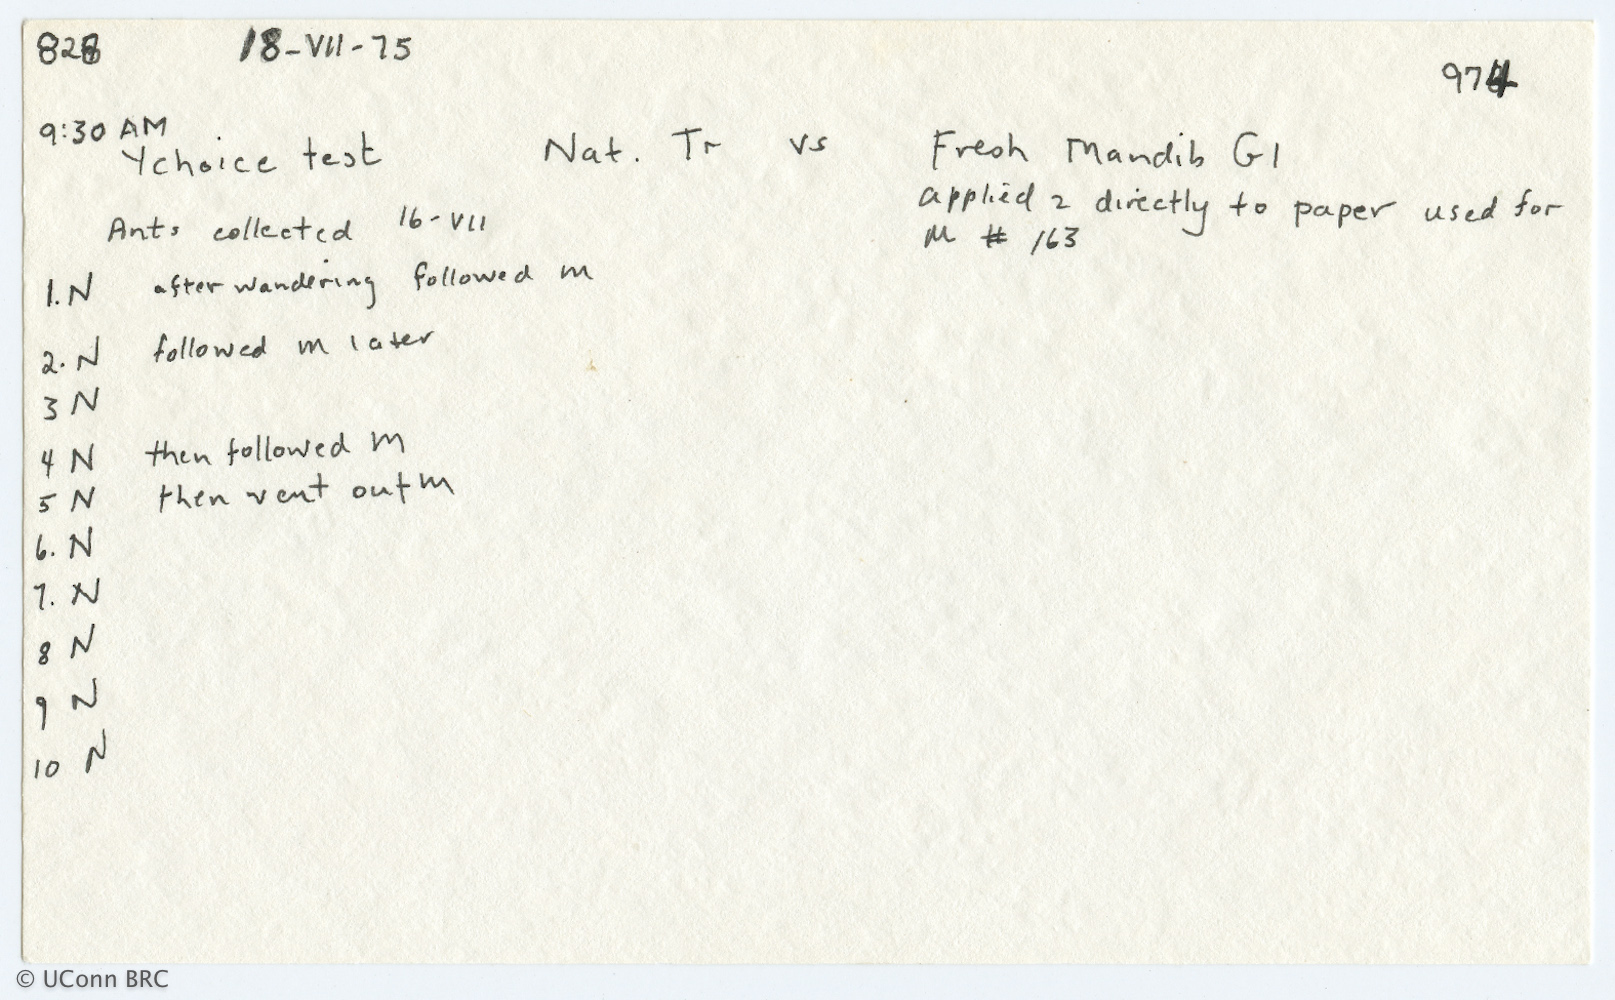 828 18-VII-75
974
9:30 AM
Ychoice test Nat. Tr vs Fresh Mandib Gl
applied 2 directly to paper used for
Ants collected 16-VII
M # 163
1. N after wandering followed m
2. N followed m later
3 N
4 N then followed M
5 N then went out m
6. N
7. N
8 N
9 N
10 N
© UConn BRC